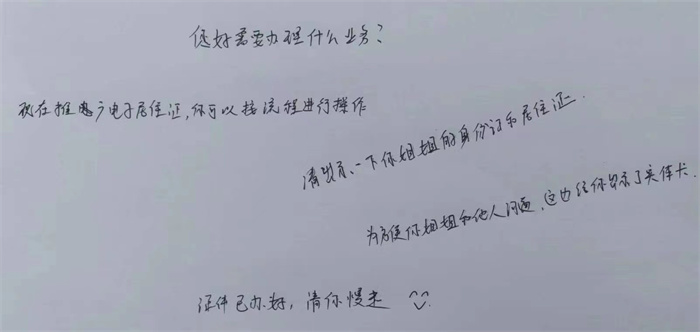 您好需要办理什么业务？
现在推广电子居住证，你可以按流程进行操作
请出示一下你姐姐的身份证和居住证.
为方便你姐姐和他人沟通，这边给你出示了实体卡.
证件已办好，请你慢走